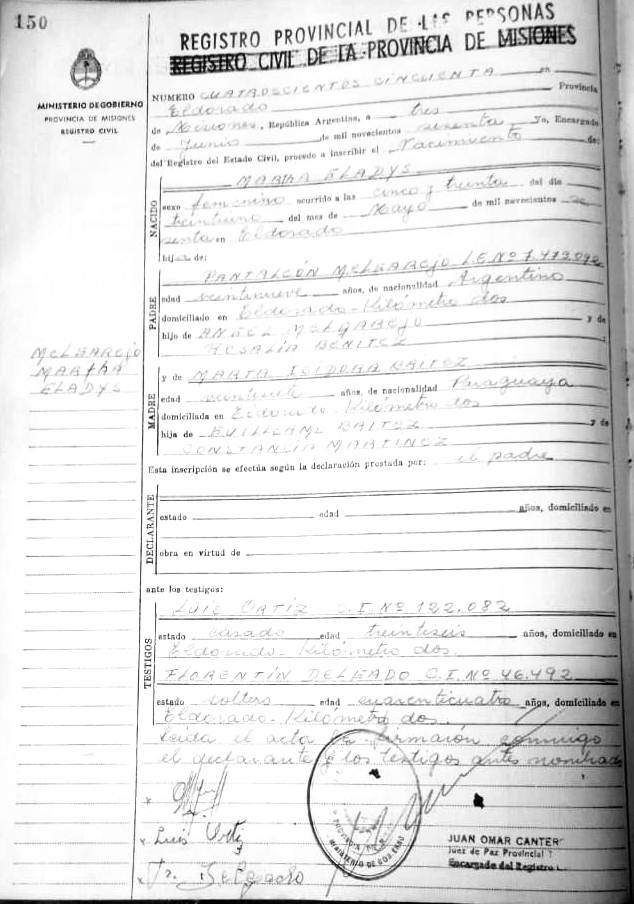 150
REGISTRO PROVINCIAL DE LAS PERSONAS
REGISTRO CIVIL DE LA PROVINCIA DE MISIONES
MINISTERIO DE GOBIERNO
PROVINCIA DE MISIONES
REGISTRO CIVIL
NUMERO CUATROSCIENTOS CINCUENTA en
Eldorado Provincia
de Misiones, República Argentina, a tres
de Junio de mil novecientos sesenta Yo, Encargado
del Registro del Estado Civil, procedo a inscribir el Nacimiento de:
NACIDO
MARTHA ELADYS
sexo femenino ocurrido a las cinco y treinta del día
treintiuno del mes de Mayo de mil novecientos se
senta en Eldorado
hija de:
PADRE
PANTALEÓN MELGAREJO L.E. Nº 7.479.092
edad veintinueve años, de nacionalidad Argentino
domiciliado en Eldorado-Kilómetro dos
hijo de ANGEL MELGAREJO y de
ROSALÍA BENITEZ
MELGAREJO
MARTHA
ELADYS
MADRE
y de MARTA ISIDORA BAITEZ
edad años, de nacionalidad Paraguaya
domiciliada en Eldorado-Kilómetro dos
hija de BAITEZ y de
CONSTANCIA MARTINEZ
Esta inscripción se efectúa según la declaración prestada por: el padre
DECLARANTE
estado edad años, domiciliado en
obra en virtud de
ante los testigos:
TESTIGOS
LUIS ORTÍZ C.I. Nº 122.082
estado casado edad treintiseis años, domiciliado en
Eldorado-Kilómetro dos.
FLORENTÍN DELGADO C.I. Nº 46.492
estado soltero edad cuarenticuatro años, domiciliado en
Eldorado-Kilómetro dos.
Leida el acta la firmarón conmigo
el declarante y los testigos antes nombrados
x
x Luis Ortiz
x Delgado
PROVINCIA DE
MINISTERIO DE GOBIERNO
JUAN OMAR CANTER
Juez de Paz Provincial
Encargado del Registro